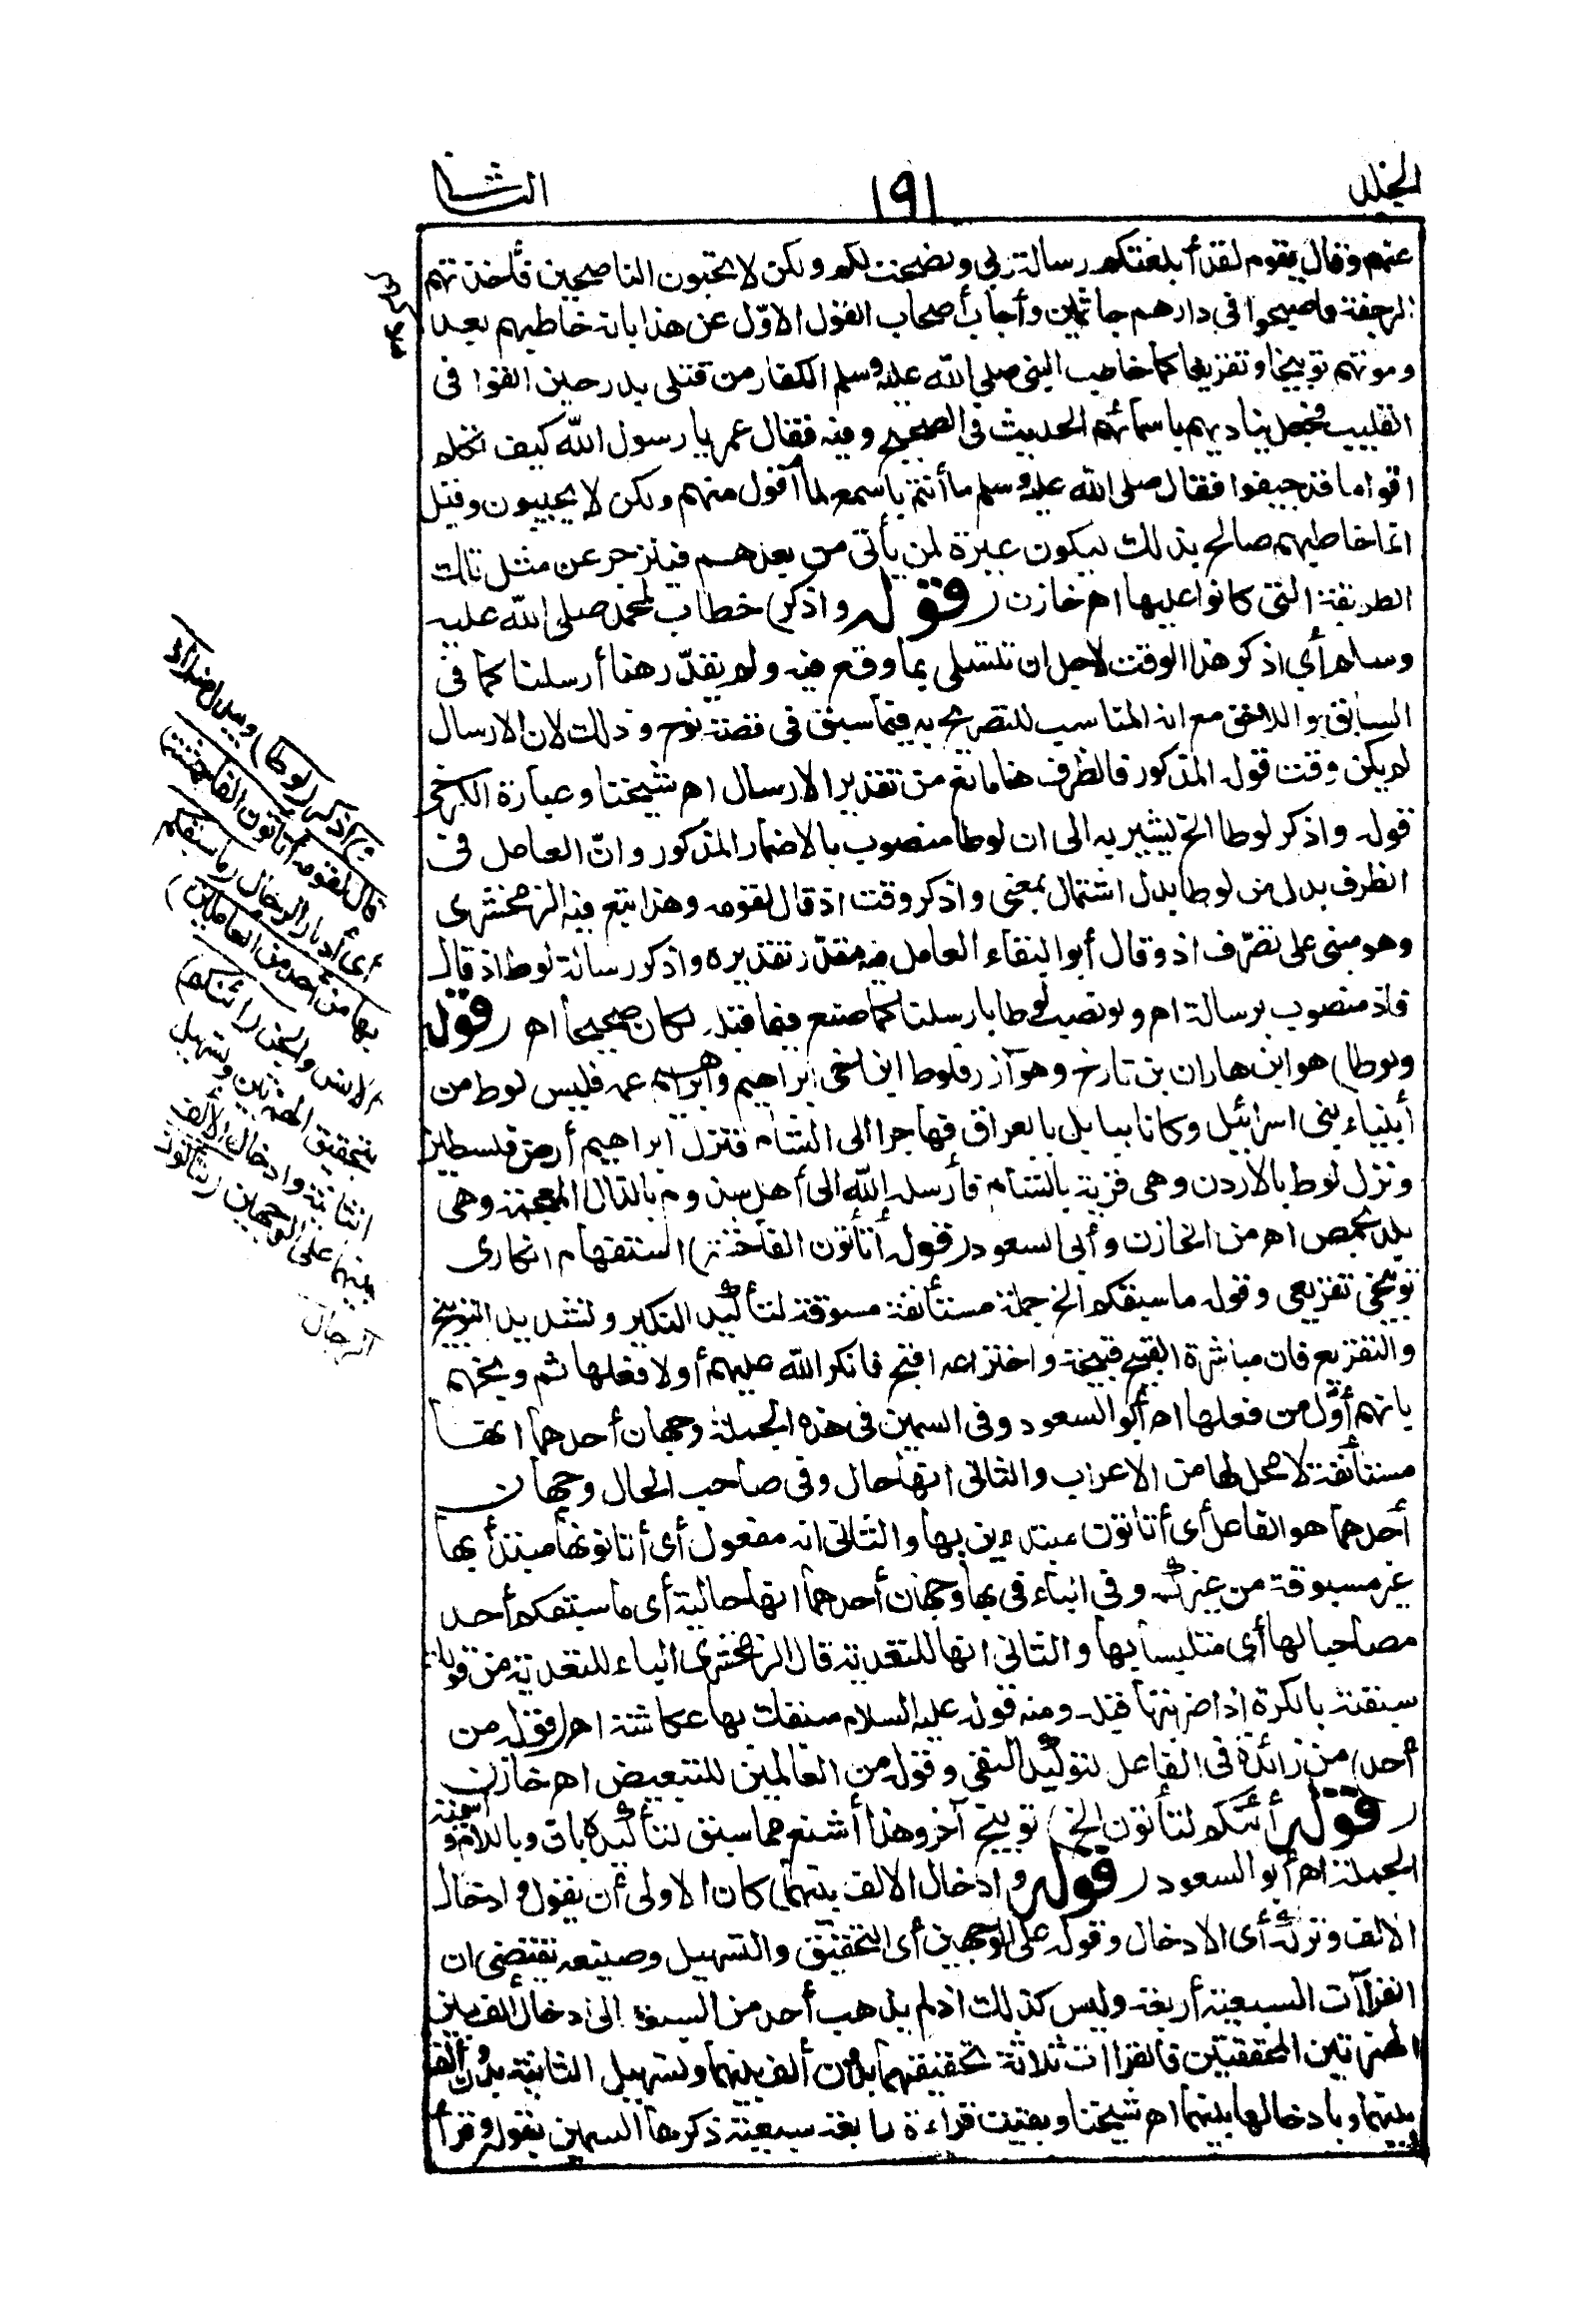 المجلد
١٩١
الثانى
عنهم وقال يقوم لقد أبلغتكم رسالة ربي ونصحت لكم ولكن لا تحبون الناصحين فأخذتهم
الرجفة فاصبحوا في دارهم جاثمين وأجاب أصحاب القول الاوّل عن هذا بانه خاطبهم بعد
وموتهم توبيخا وتقريعا كما خاطب النبى صلى الله عليه وسلم الكفار من قتلى بدر حين القوا فى
القليب فجعل يناديهم باسمائهم الحديث فى الصحيح وفيه فقال عمر يا رسول الله كيف تكلم
اقواما قد جيفوا فقال صلى الله عليه وسلم ما أنتم باسمع لما أقول منهم ولكن لا يجيبون وقيل
انما خاطبهم صالح بذلك ليكون عبرة لمن يأتى من بعدهم فينزجر عن مثل تلك
الطريقة التى كانوا عليها اهـ خازن (قوله واذكر) خطاب لمحمد صلى الله عليه
وسلم أي اذكر هذا الوقت لاجل ان تتسلى بما وقع فيه ولم يقدّر هنا أرسلنا كما فى
السابق واللاحق مع انه المناسب للتصريح به فيما سبق فى قصة نوح وذلك لان الارسال
لم يكن وقت قوله المذكور فالظرف هنا مانع من تقدير الارسال اهـ شيخنا وعبارة الكرخى
قوله واذكر لوطا الخ يشير به الى ان لوطا منصوب بالاضمار المذكور وانّ العامل فى
الظرف بدل من لوطا بدل اشتمال بمعنى واذكر وقت اذ قال لقومه وهذا تبع فيه الزمخشرى
وهو مبنى على تصرّف اذ وقال أبو البقاء العامل فيه مقدّر تقديره واذكر رسالة لوط اذ قال
فاذ منصوب برسالة اهـ ولو نصب لوطا بارسلنا كما صنع فيما قبله لكان صحيحا اهـ (قوله
ولوطا) هو ابن هاران بن تارخ وهو آزر فلوط ابن اخى ابراهيم وابراهيم عمه فليس لوط من
أنبياء بنى اسرائيل وكانا ببابل بالعراق فهاجرا الى الشام فنزل ابراهيم أرض فلسطين
ونزل لوط بالاردن وهى قرية بالشام فأرسله الله الى أهل سذوم بالذال المعجمة وهى
بلد بحمص اهـ من الخازن وأبى السعود (قوله أتأتون الفاحشة) استفهام انكارى
توبيخى تقريعى وقوله ما سبقكم الخ جملة مستأنفة مسوقة لتأكيد النكير ولتشديد التوبيخ
والتقريع فان مباشرة القبيح قبيحة واختراعه اقبح فانكر الله عليهم أولا فعلها ثم وبخهم
بانهم أوّل من فعلها اهـ أبو السعود وفى السمين فى هذه الجملة وجهان أحدهما انها
مستأنفة لا محل لها من الاعراب والثانى انها حال وفى صاحب الحال وجهان
أحدهما هو الفاعل أى أتأتون مبتدءين بها والثانى انه مفعول أى أتأتونها مبتدأ بها
غير مسبوقة من غيركم وفى الباء فى بها وجهان أحدهما انها حالية أى ما سبقكم أحد
مصاحبا لها أى متلبسا بها والثانى انها للتعدية قال الزمخشرى الباء للتعدية من قولك
سبقته بالكرة اذا ضربتها قبله ومنه قوله عليه السلام سبقك بها عكاشة اهـ (قوله من
أحد) من زائدة فى الفاعل لتوكيد النفى وقوله من العالمين للتبعيض اهـ خازن
(قوله أئنكم لتأتون الخ) توبيخ آخر وهذا أشنع مما سبق لتأكيده بان وباللام واسمية
الجملة اهـ أبو السعود (قوله وادخال الالف بينهما) كان الاولى أن يقول وادخال
الالف وتركه أى الادخال وقوله على الوجهين أى التحقيق والتسهيل وصنيعه يقتضى ان
القراآت السبعية أربعة وليس كذلك اذ لم يذهب أحد من السبعة الى ادخال ألف بين
الهمزتين المحققتين فالقراآت ثلاثة تحقيقهما بدون ألف بينهما وتسهيل الثانية بدون ألف
بينهما وبادخالها بينهما اهـ شيخنا وبقيت قراءة رابعة سبعية ذكرها السمين بقوله وقرأ
و) اذكر (لوطا) ويبدل منه (اذ
قال لقومه أتأتون الفاحشة)
أى أدبار الرجال (ما سبقكم
بها من أحد من العالمين)
الانس والجن (أئنكم)
بتحقيق الهمزتين وتسهيل
الثانية وادخال الألف
بينهما على الوجهين (لتأتون
الرجال